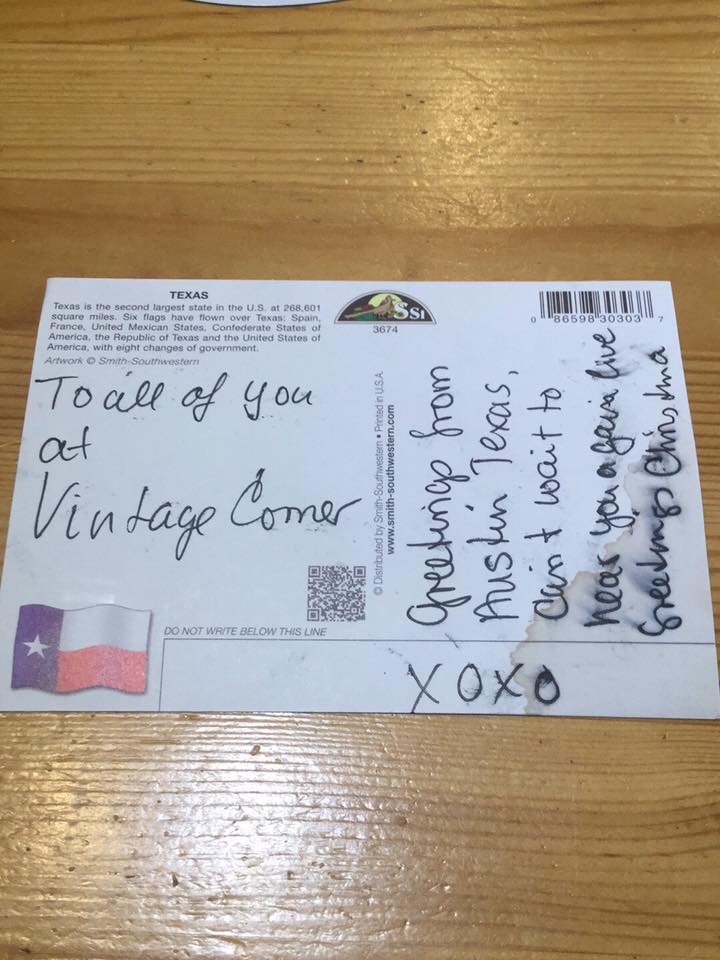 TEXAS
Texas is the second largest state in the U.S. at 268,601
square miles. Six flags have flown over Texas: Spain,
France, United Mexican States, Confederate States of
America, the Republic of Texas and the United States of
America, with eight changes of government.
Artwork © Smith-Southwestern
SSI
3674
0 86598 30303 7
To all of you
at
Vintage Corner
© Distributed by Smith-Southwestern • Printed in U.S.A.
www.smith-southwestern.com
Greetings from
Austin Texas,
Can't wait to
hear you again live
Greetings Christina
DO NOT WRITE BELOW THIS LINE
XOXO